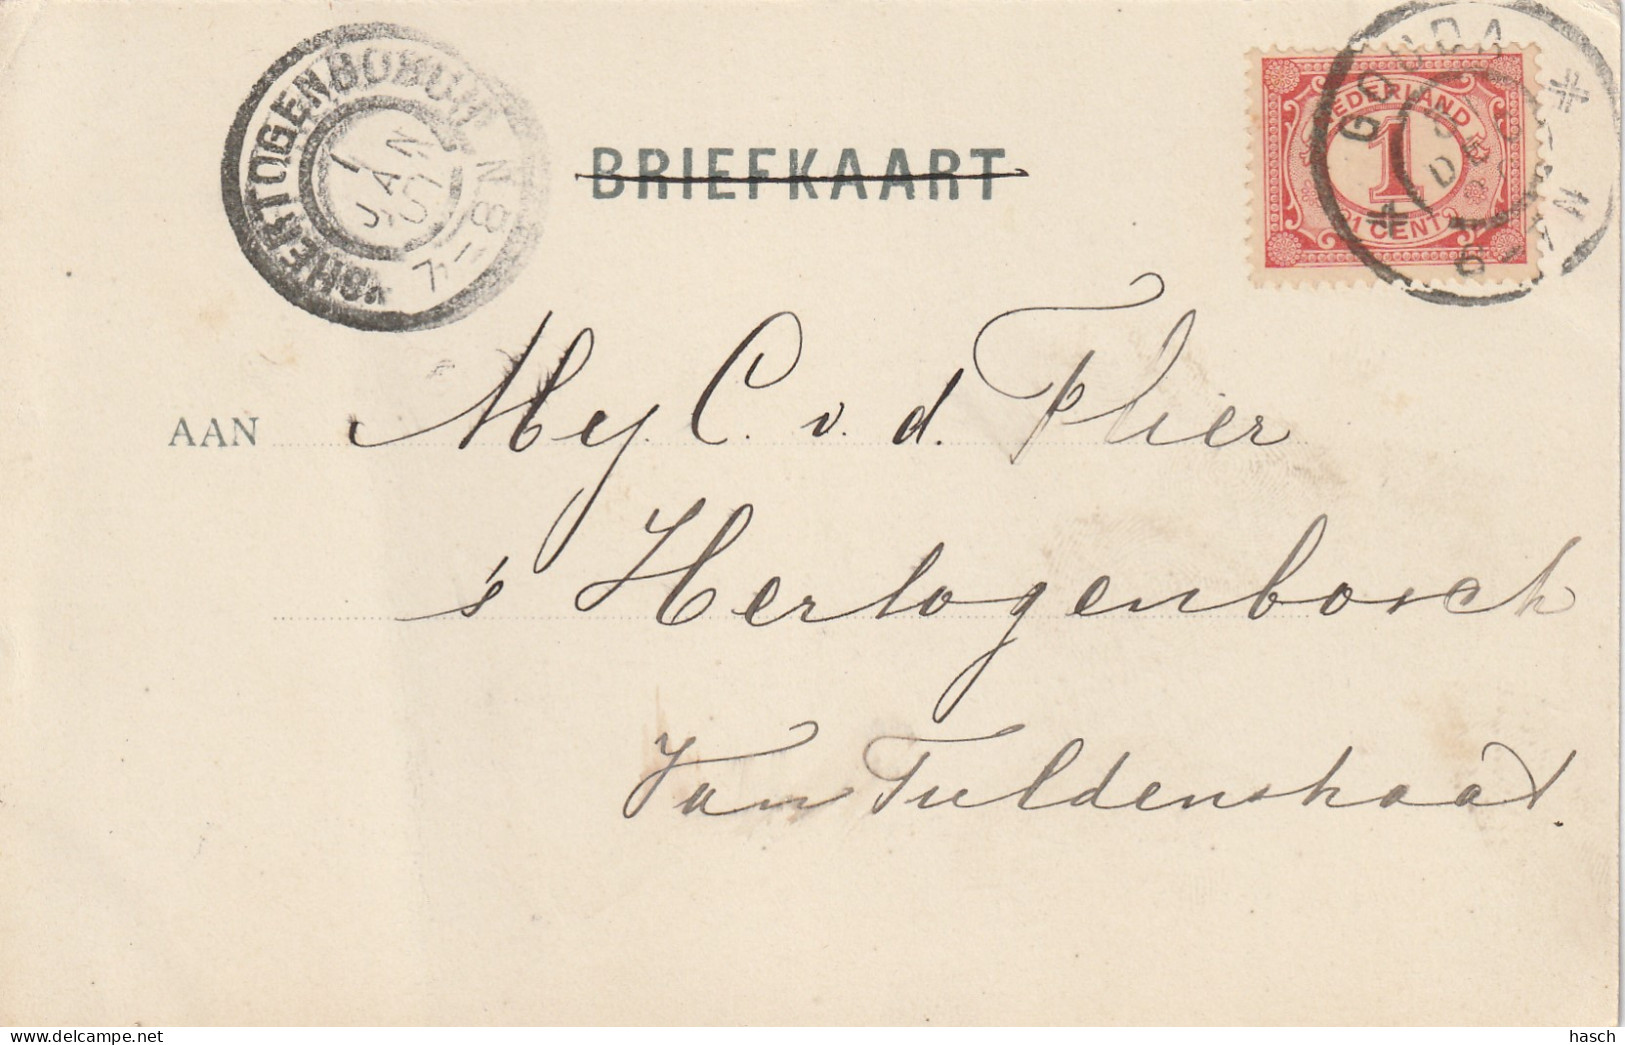 GOUDA
'SHERTOGENBOSCH
1 JAN
7-8 N
BRIEFKAART
NEDERLAND
1
1 CENT
DEC
AAN Mej. C. v. d. Flier
's Hertogenbosch
Van Tuldenstraat.
hasch
www.delcampe.net